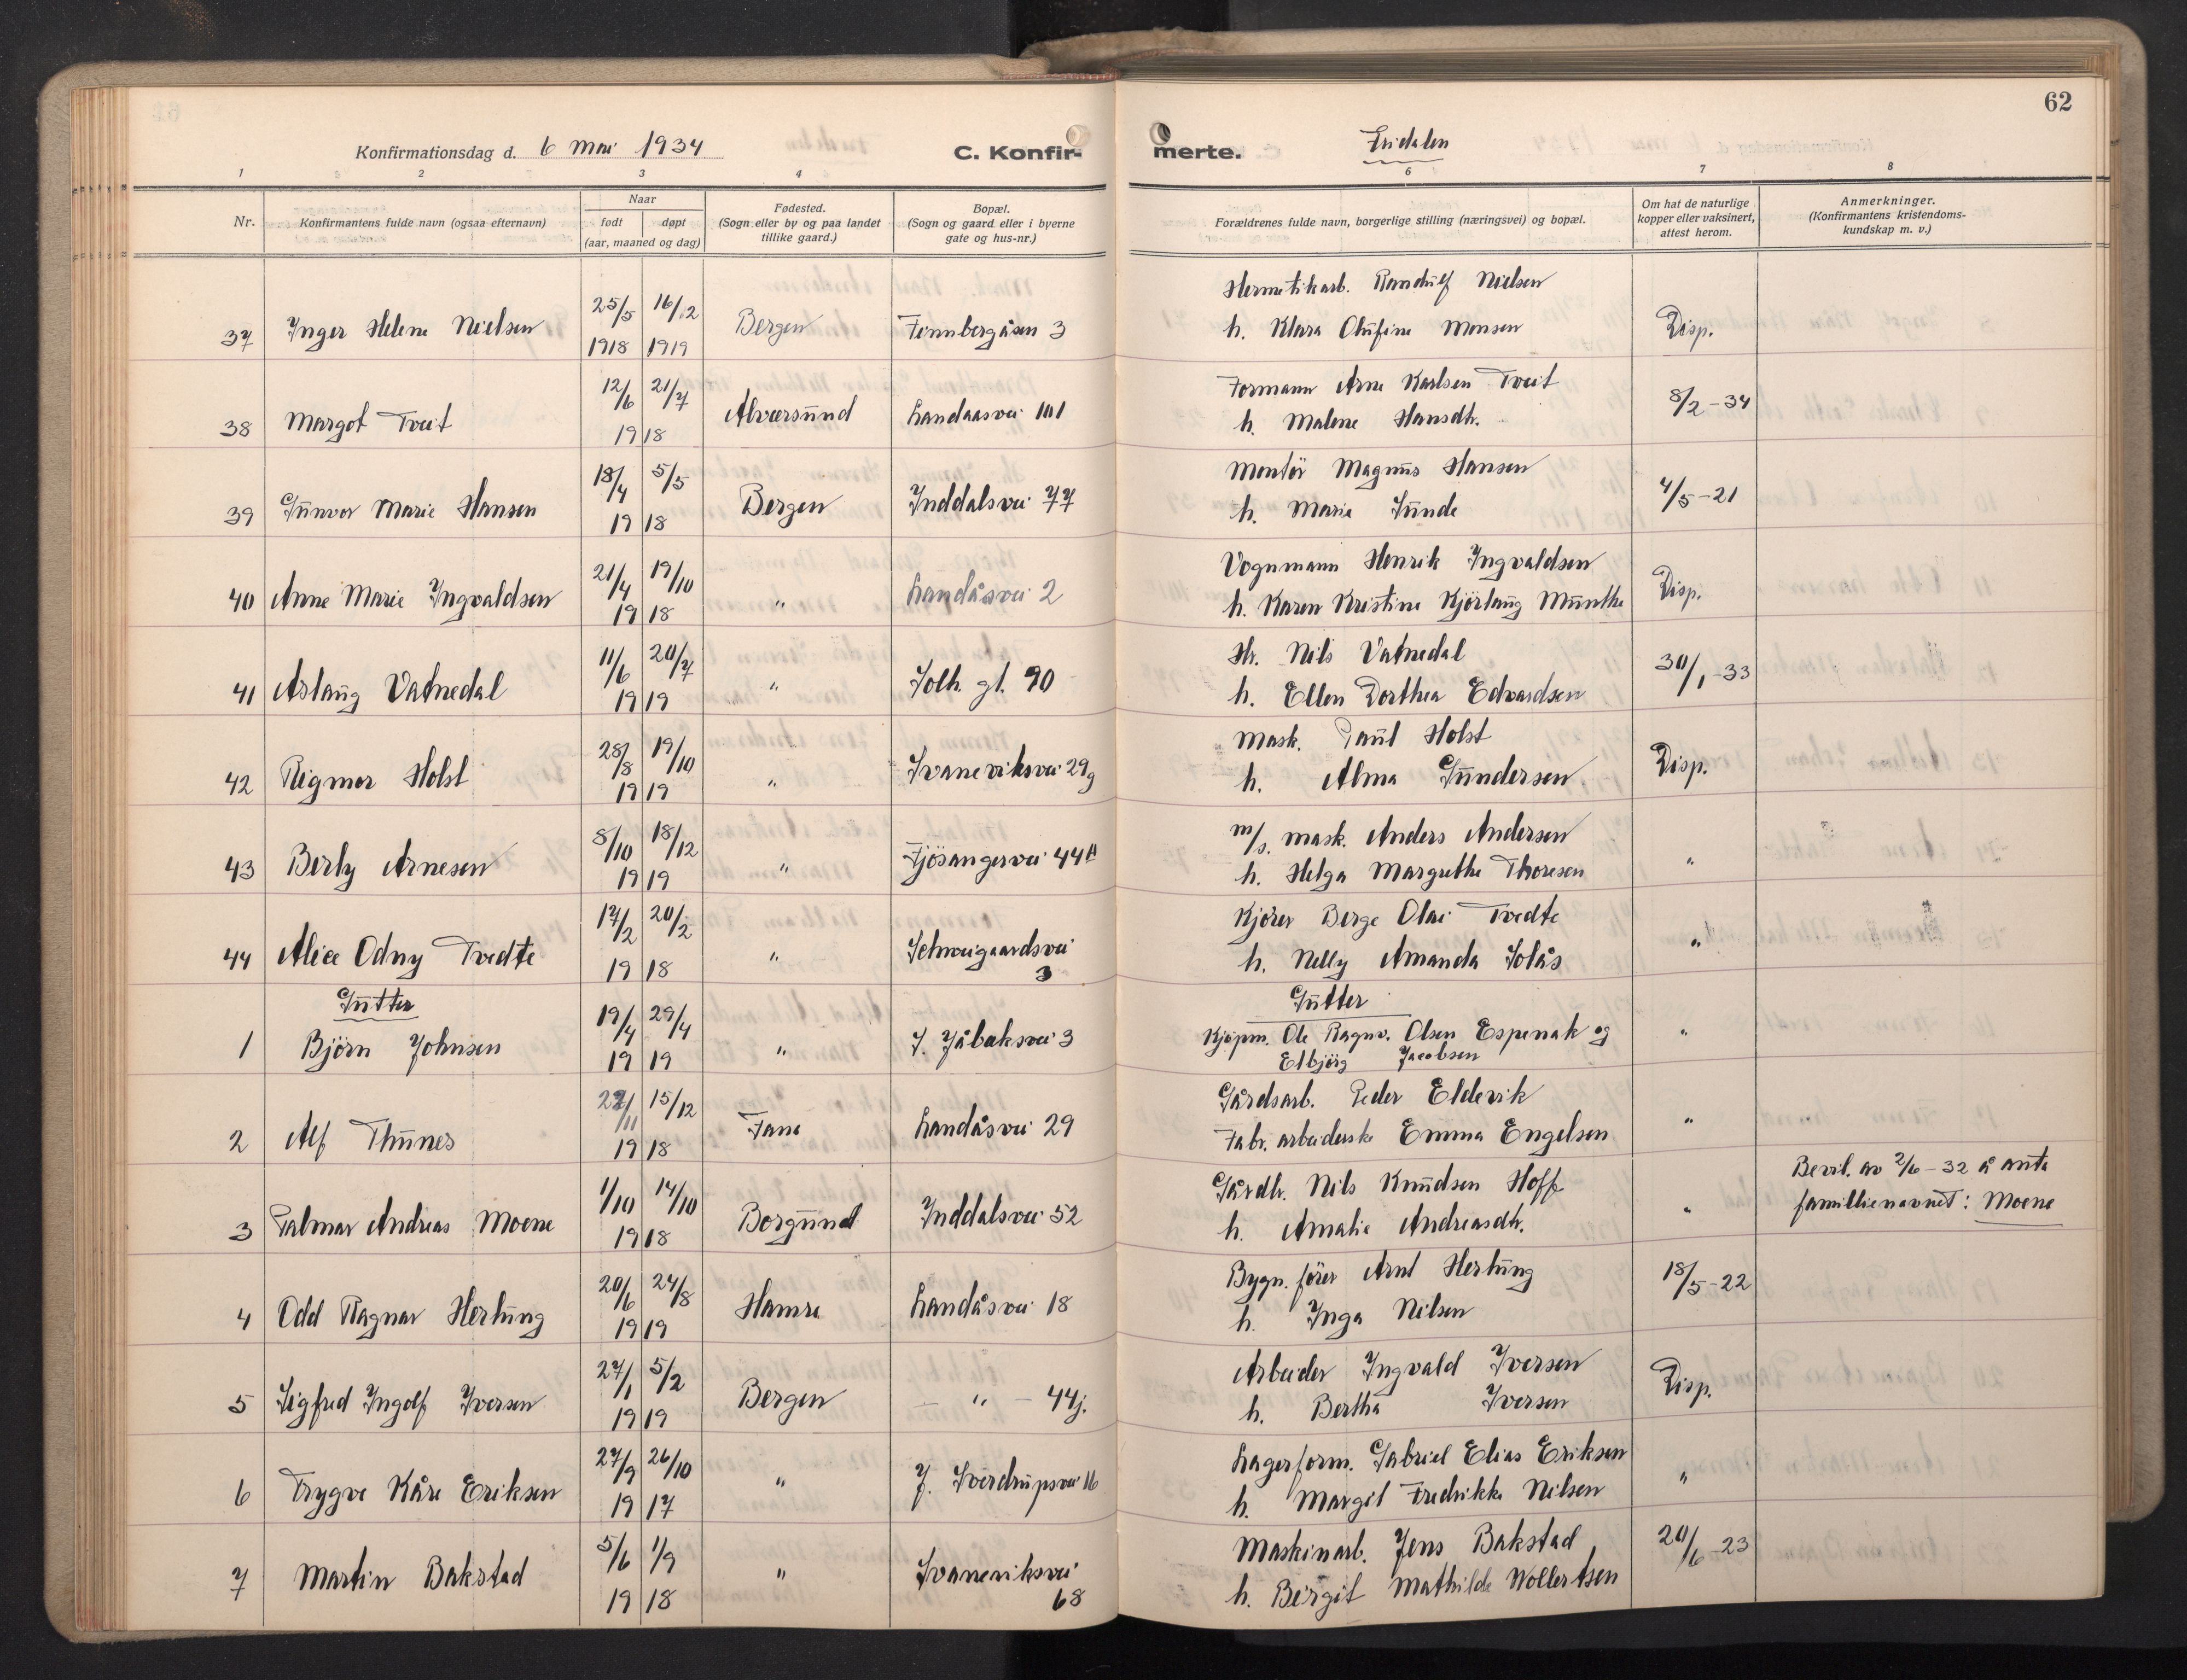 62
Konfirmationsdag d. 6 mai 1934
C. Konfir-
merte.
Fridalen
1 2 3 4 6 7 8
Nr.
Konfirmantens fulde navn (ogsaa efternavn)
Naar
født døpt
(aar, maaned og dag)
Fødested.
(Sogn eller by og paa landet
tillike gaard.)
Bopæl.
(Sogn og gaard eller i byerne
gate og hus-nr.)
Forældrenes fulde navn, borgerlige stilling (næringsvei) og bopæl.
Om hat de naturlige
kopper eller vaksinert,
attest herom.
Anmerkninger.
(Konfirmantens kristendoms-
kundskap m. v.)
Hermetikarb. Randulf Nielsen
37 Inger Helene Nielsen 25/5 1918 16/2 1919 Bergen Finnbergåsen 3
h. Klara Olufine Monsen Disp.
Formann Arne Karlsen Tveit
38 Margot Tveit 12/6 21/7 1918 Alversund Landaasvei 101
h. Malene Hansdh. 8/2-34
Montör Magnus Hansen
39 Gunvor Marie Hansen 18/4 5/5 1918 Bergen Inddalsvei 77
h. Marie Sunde 4/5-21
Vognmann Henrik Ingvaldsen
40 Anne Marie Ingvaldsen 21/4 19/10 1918 " Landåsvei 2
h. Karen Kristine Kjörlaug Munthe Disp.
Hr. Nils Vatnedal
41 Aslaug Vatnedal 11/6 20/7 1919 " Solh. gt. 90
h. Ellen Dorthea Edvardsen 30/1-33
Mask. Paul Holst
42 Rigmor Holst 28/8 19/10 1919 " Svaneviksvei 29g
h. Alma Gundersen Disp.
m/s. mask. Anders Andersen
43 Berly Arnesen 8/10 18/12 1919 " Fjösangervei 44A
h. Helga Margrethe Thoresen "
Kjörer Berge Olai Tvedte
44 Alice Odny Tvedte 17/2 20/2 1918 " Schweigaardsvei
3
h. Nelly Amanda Solås "
Gutter
Gutter
1 Björn Johnsen 19/4 29/4 1919 " J. Jåbaksvei 3
Kjöpm. Ole Ragnv. Olsen Espenak og
Elbjörg Jacobsen "
Gårdsarb. Peder Eldevik
2 Alf Thunes 27/11 15/12 1918 Fana Landåsvei 29
Fabr. arbeiderske Emma Engelsen "
Gårdbr. Nils Knudsen Hoff
3 Palmar Andreas Moene 1/10 14/10 1918 Borgund Inddalsvei 52
h. Amalie Andreasdh. "
Bevil. av 2/6-32 å anta
familienavnet: Moene
Bygn. förer Arnt Hertung
4 Odd Ragnar Hertung 20/6 24/8 1919 Hamre Landåsvei 18
h. Inga Nilsen 18/5-22
Arbeider Ingvald Iversen
5 Sigfred Ingolf Iversen 27/1 5/2 1919 Bergen — " — 44j.
h. Bertha Iversen Disp.
Lagerform. Gabriel Elias Eriksen
6 Trygve Kåre Eriksen 27/9 26/10 1917 " J. Sverdrupsvei 16
h. Margit Fredrikke Nilsen "
Maskinarb. Jens Bakstad
7 Martin Bakstad 5/6 1/9 1918 " Svaneviksvei
68
h. Birgit Mathilde Wollertsen 20/6-23